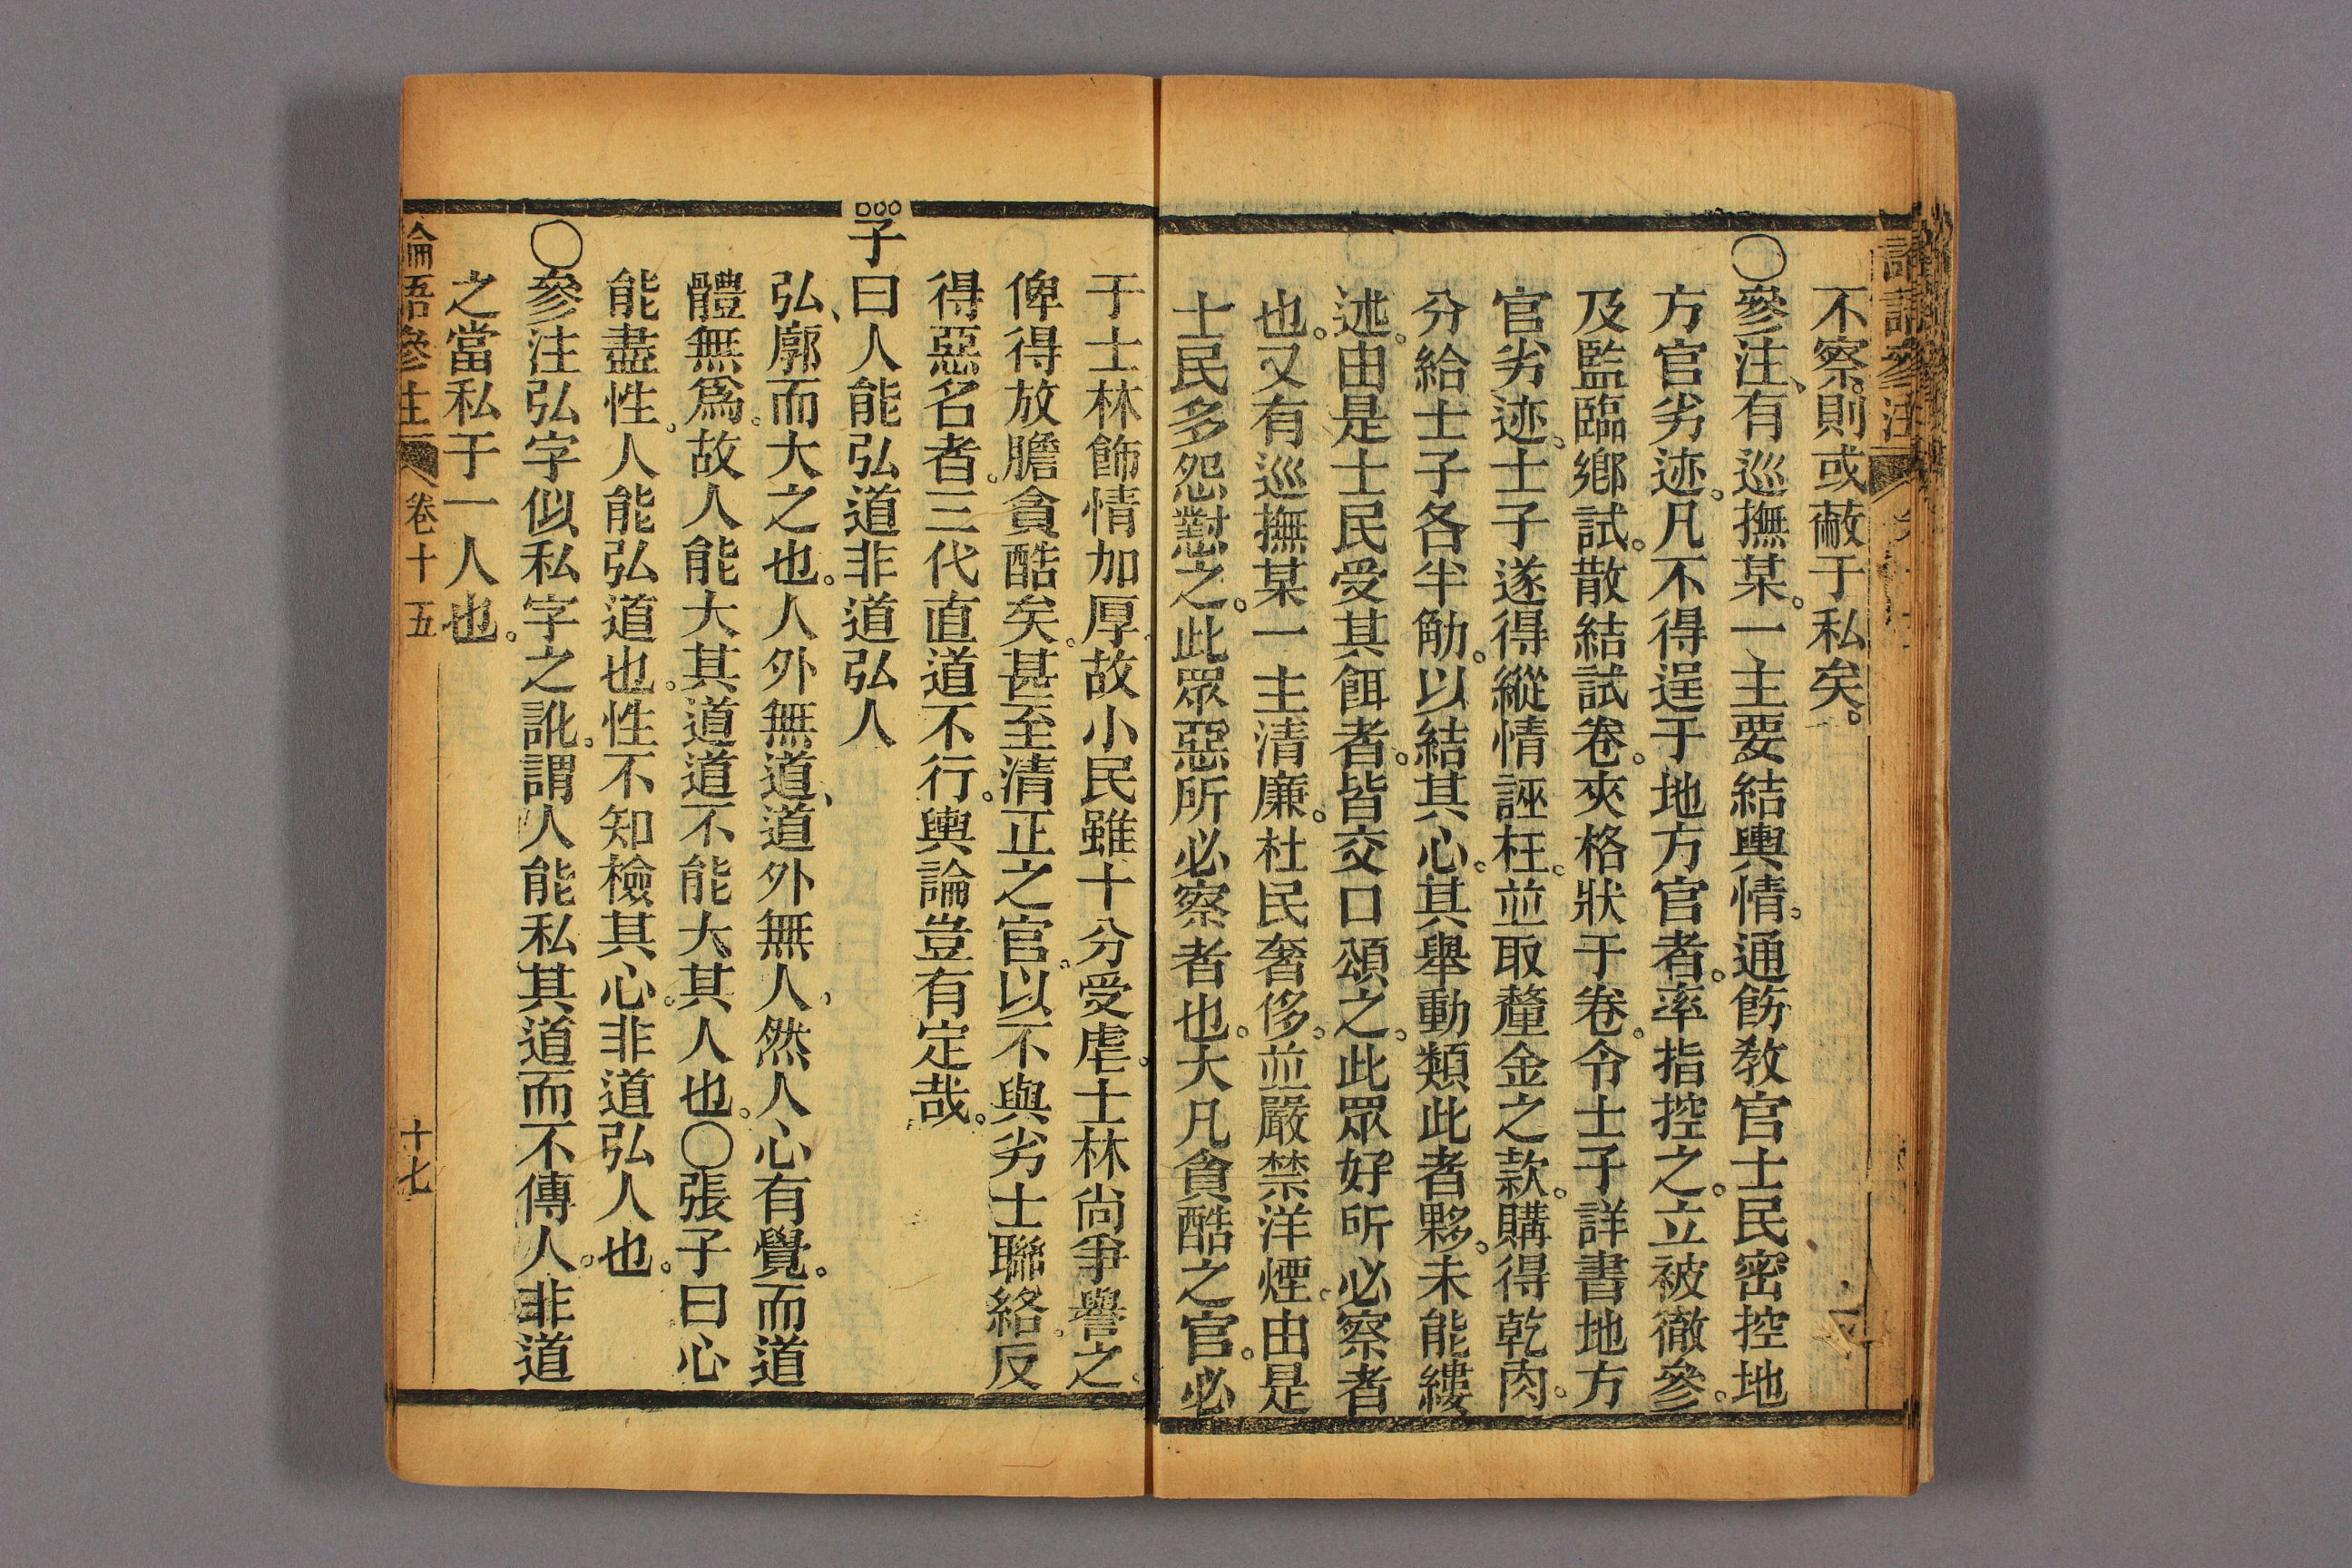 不察。則或蔽于私矣。
〇參注、有巡撫某。一主要結輿情。通飭教官士民密控地
方官劣迹。凡不得逞于地方官者。率指控之。立被徹參。
及監臨鄉試。散結試卷。夾格狀于卷。令士子詳書地方
官劣迹。士子遂得縱情誣枉。並取釐金之款。購得乾肉。
分給士子各半觔。以結其心。其舉動類此者夥。未能縷
述。由是士民受其餌者。皆交口頌之。此眾好所必察者
也。又有巡撫某一主清廉。杜民奢侈。並嚴禁洋煙。由是
士民多怨懟之。此眾惡所必察者也。大凡貪酷之官。必
于士林飾情加厚。故小民雖十分受虐。士林尚爭譽之。
俾得放膽貪酷矣。甚至清正之官。以不與劣士聯絡。反
得惡名者。三代直道不行。輿論豈有定哉。
子曰人能弘道非道弘人
弘、廓而大之也。人外無道、道外無人、然人心有覺。而道
體無爲。故人能大其道道不能大其人也。〇張子曰心
能盡性。人能弘道也。性不知檢其心。非道弘人也。
〇參注弘字似私字之訛。謂人能私其道而不傳人。非道
之當私于一人也。
論語參注 卷十五 十七